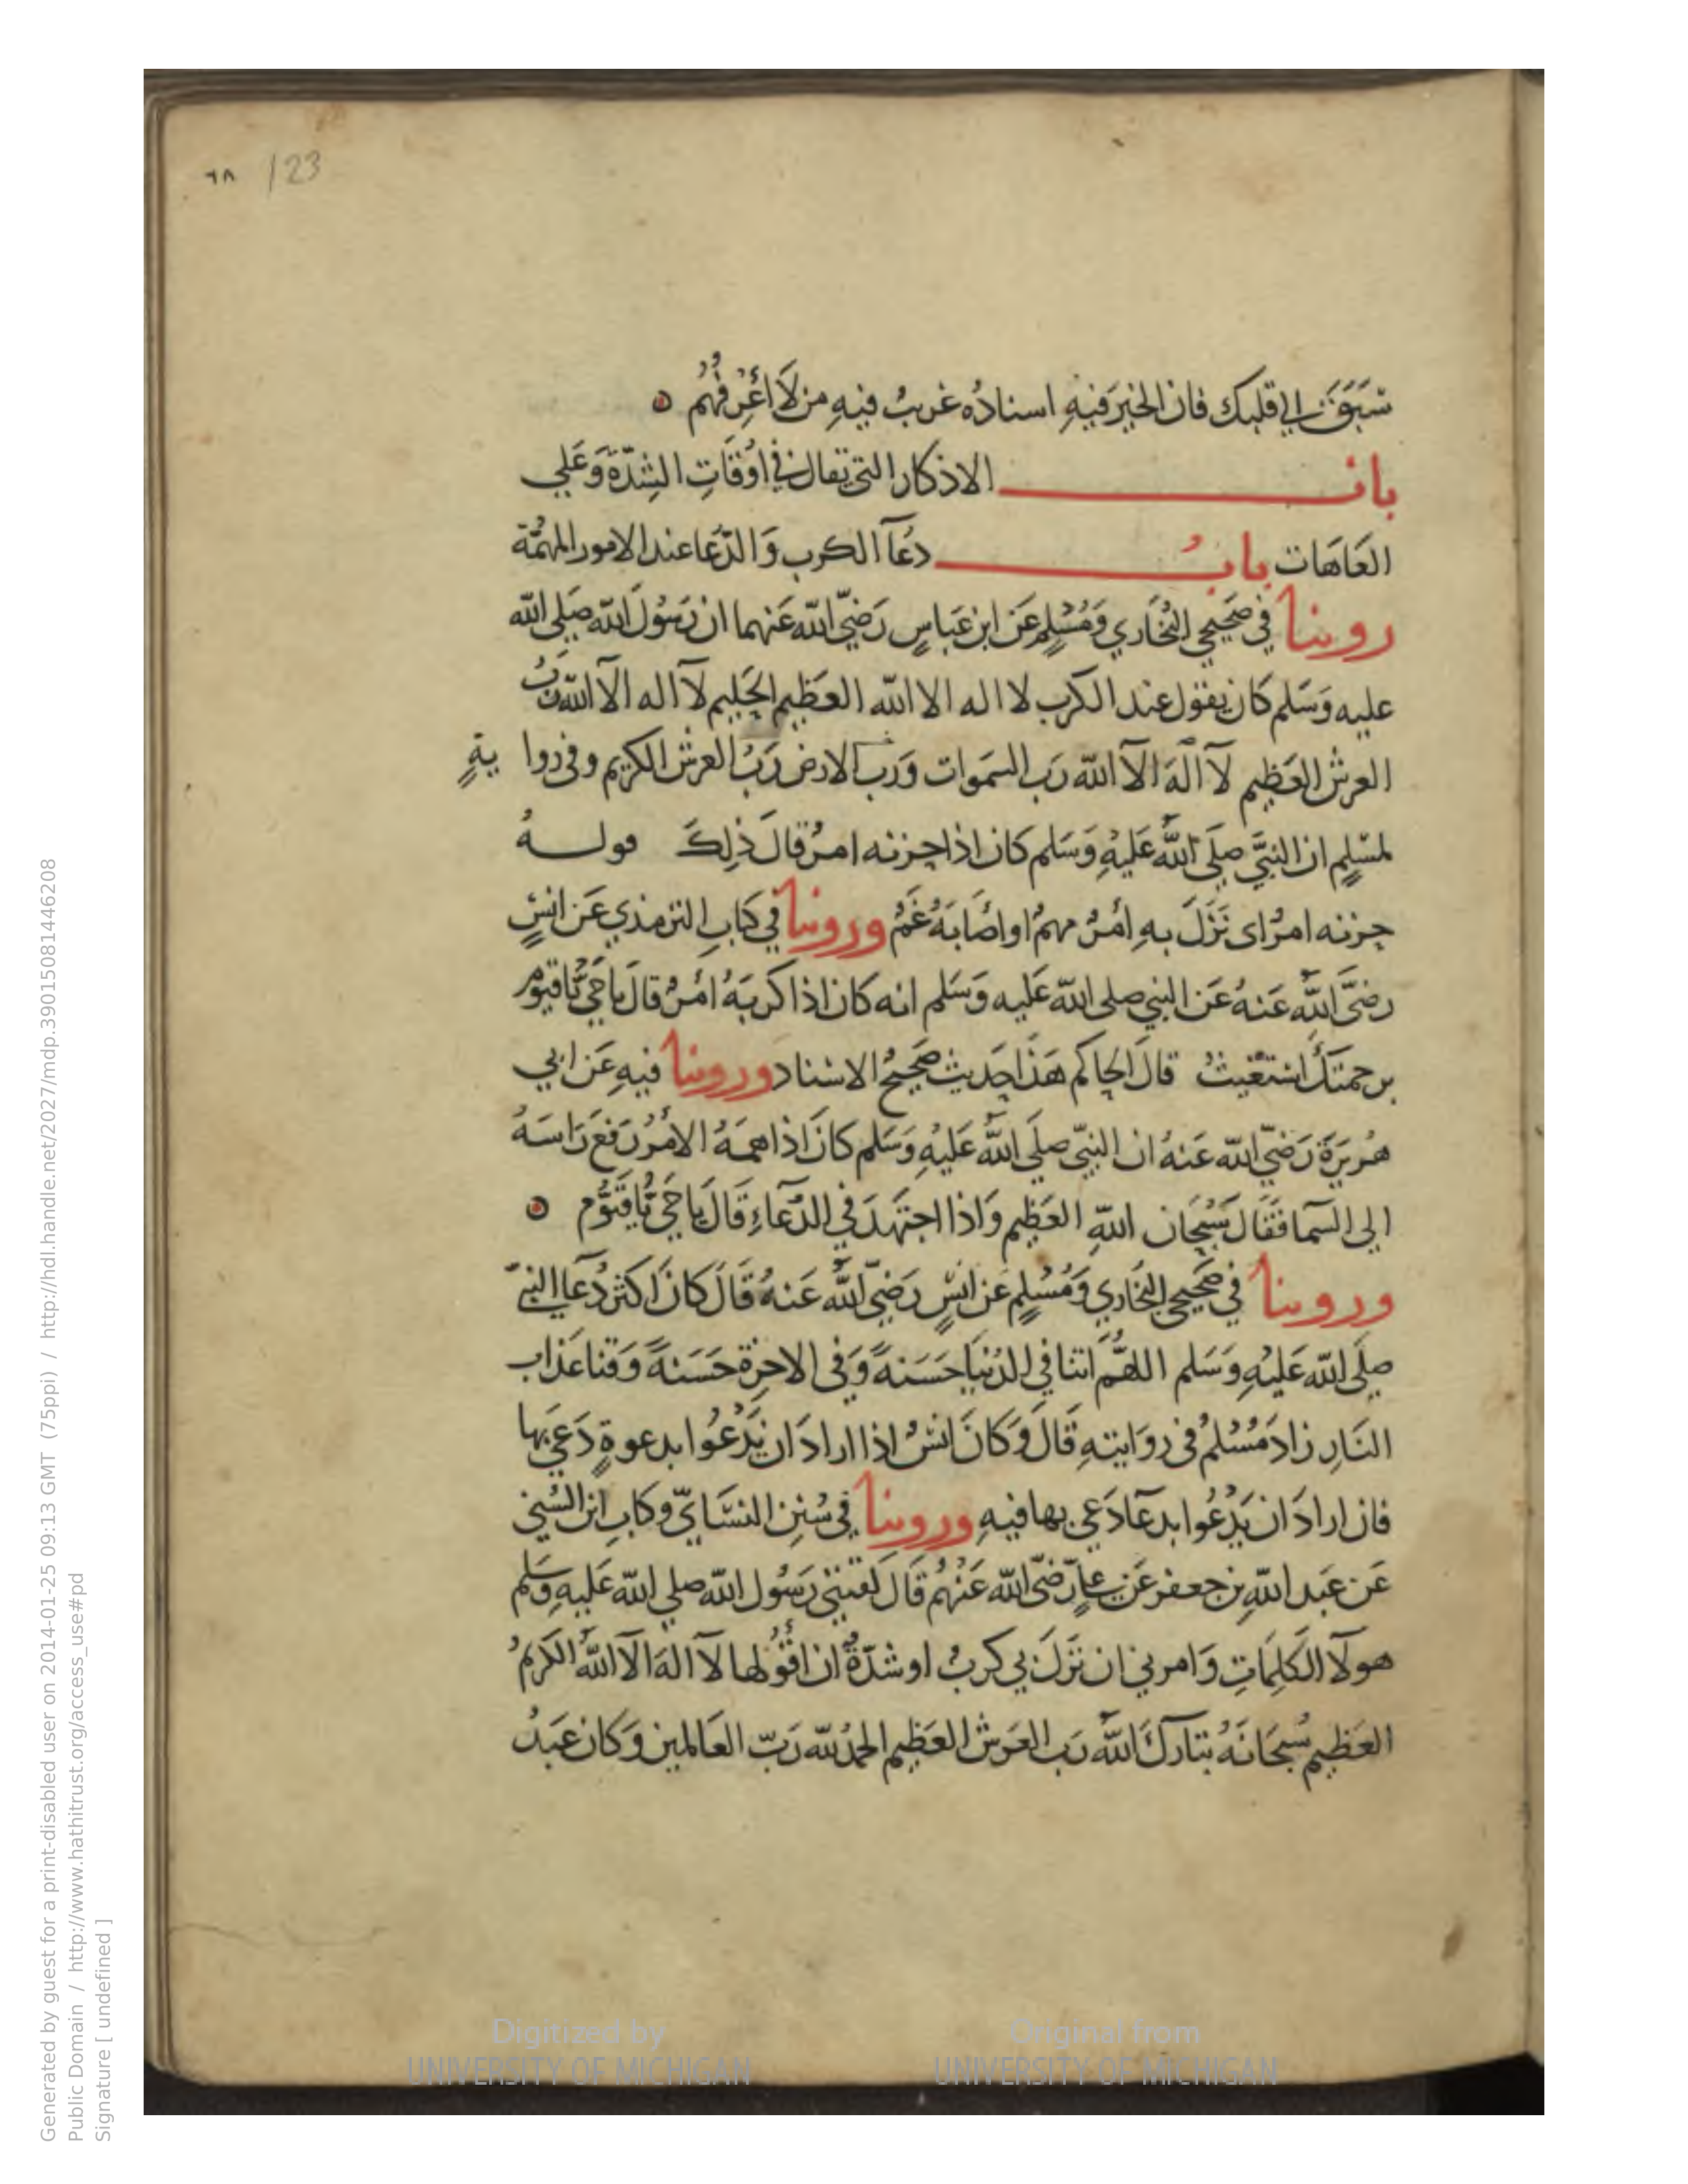 ٦٨ 123
سَبَقَ الي قلبك فان الخيرَ فيهِ اسنادُه غريبٌ فيهِ من لَا أَعْرِفُهُم
باب الاذكار التي تقال في اوْقَاتِ الشِدّة وَعَلي
العَاهَات بابُ دعَآ الكرب وَالدّعَا عند الامور المهمَّة
روينا في صَحيحي البُخَاري وَمُسْلِمٍ عَن ابن عَباسٍ رَضيّ الله عَنهما ان رَسُولَ الله صَلي الله
عليه وَسَلم كان يقول عند الكرب لا اله الا الله العَظيم الحَليم لآ اله الآ الله رَبُ
العرش العَظيم لآ الَهَ الآ الله رَب السمَوات وَرب الارض رَبُ العرش الكريم وفي روايةٍ
لمسْلِمٍ ان النبيَّ صلَى اللهُ عَليْهِ وَسَلم كان اذا حزنه امرٌ قالَ ذلِكَ قولهُ
حزنه امرٌ اى نَزَلَ بهِ أمرٌ مهمٌ او اصَابَهُ غَمٌ وروينا في كتابِ الترمذي عَن انسٍ
رضيَ اللهُ عَنهُ عَن النبي صلى الله عَليه وَسَلم انه كان اذا كربَهُ امْرٌ قالَ يا حَيُّ يَا قيوُم
برحمتكَ استغيثُ قالَ الحاكم هَذا حَديث صَحيحُ الاسناد وروينا فيهِ عَن ابي
هُريرَةَ رَضيَ الله عَنهُ ان النبيّ صلَي اللهُ عَليْهِ وَسَلم كانَ اذا اهمهُ الامْرُ رَفعَ رَاسَهُ
الى السّما فقَالَ سُبْحَان اللهِ العَظيم وَاذا اجتهَدَ في الدّعَاءِ قَالَ يا حَيُّ يَا قَيّوُم
وروينا في صَحيحي البُخَاري وَمُسْلِمٍ عَن انَسٍ رَضيّ اللهُ عَنهُ قَالَ كانَ اكثرُ دُعَآ النبيّ
صلَى الله عَليْهِ وَسَلم اللهُمّ اتنا في الدُنيَا حَسَنةً وَفي الاخرة حَسَنةً وَقنا عَذاب
النَارِ زادَ مُسْلمٌ في روَايتهِ قَالَ وَكانَ انسٌ اذا ارادَ ان يَدْعُوا بدعوةٍ دَعَي بها
فان ارادَ ان يَدْعُوا بدعَآ دَعَي بها فيهِ وروينا في سُننِ النسَّايّ وكتابِ ابن السُني
عَن عَبد اللهِ بن جعفر عَن علي رَضيَّ الله عَنْهُم قَالَ لقنني رَسُول الله صلي الله عَليهِ وَسَلم
هولآ الكَلِمَاتِ وَامرني ان نَزَلَ بي كربٌ او شدّةٌ ان اقُولها لآ الهَ الآ اللهُ الكَريمُ
العَظيم سُبْحَانَهُ تبَارك اللهُ رَب العَرش العَظيم الحمدُ لله رَبّ العَالمين وَكان عَبدُ
Generated by guest for a print-disabled user on 2014-01-25 09:13 GMT (75ppi) / http://hdl.handle.net/2027/mdp.39015081446208
Public Domain / http://www.hathitrust.org/access_use#pd
Signature [ undefined ]
Digitized by UNIVERSITY OF MICHIGAN
Original from UNIVERSITY OF MICHIGAN